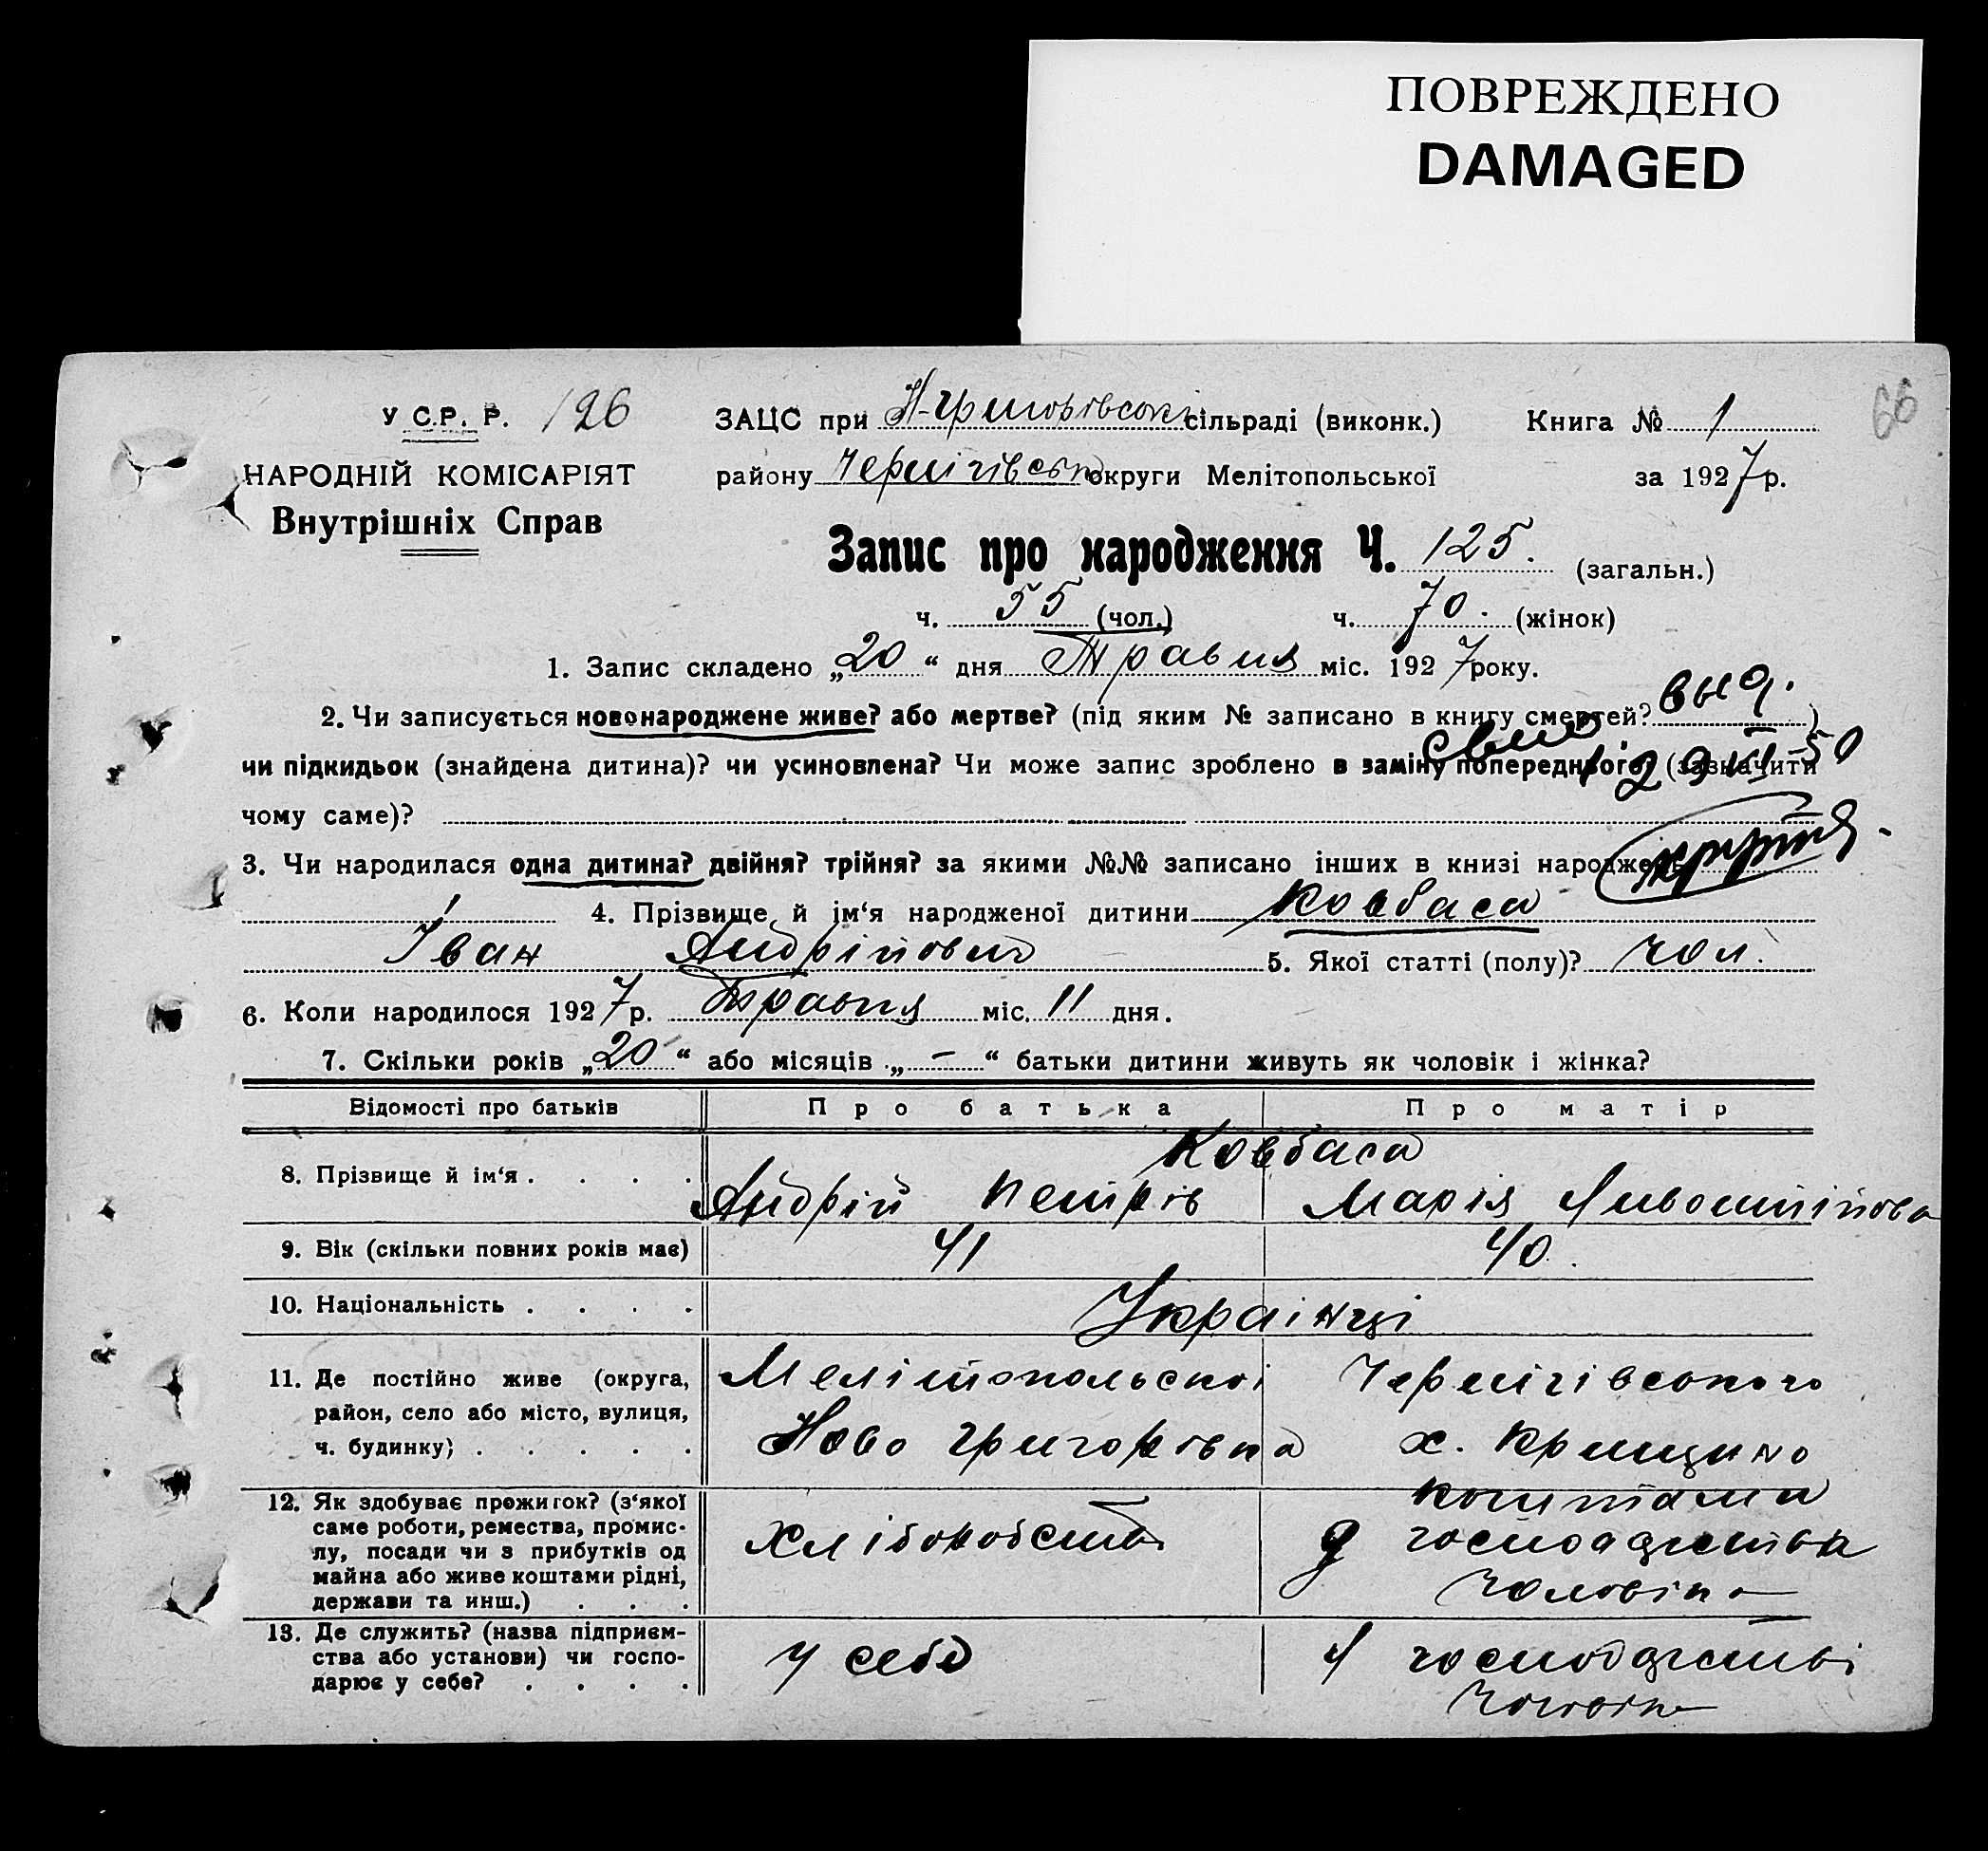 ПОВРЕЖДЕНО
DAMAGED
У С.Р. Р. 126 ЗАЦС при Н-Григорівські сільраді (виконк.) Книга № 1 66
НАРОДНІЙ КОМІСАРІЯТ району Чернігівськ округи Мелітопольської за 1927 р.
Внутрішніх Справ
Запис про народження Ч. 125. (загальн.)
ч. 55 (чол.) ч. 70. (жінок)
1. Запис складено „20“ дня Травня міс. 1927 року.
2. Чи записується новонароджене живе? або мертве? (під яким № записано в книгу смертей? выд. )
чи підкидьок (знайдена дитина)? чи усиновлена? Чи може запис зроблено в заміну попереднього? (зазначити
чому саме)?
3. Чи народилася одна дитина? двійня? трійня? за якими №№ записано інших в книзі народжень
4. Прізвище й ім‘я народженої дитини Ковбаса
Іван Андрійович 5. Якої статті (полу)? чол.
6. Коли народилося 1927 р. Травня міс. 11 дня.
7. Скільки років „20“ або місяців „—“ батьки дитини живуть як чоловік і жінка?
Відомості про батьків Про батька Про матір
Ковбаса
8. Прізвище й ім‘я . . . . Андрій Петрів Марія
9. Вік (скільки повних років має) 41 40.
10. Національність . . . . Українці
11. Де постійно живе (округа, Мелітопольскоі Чернігівського
район, село або місто, вулиця,
ч. будинку) . . . . . Ново Григорівка х.
12. Як здобуває прожиток? (з‘якої коштами
саме роботи, ремества, промис-
лу, посади чи з прибутків од Хліборобство господарства
майна або живе коштами рідні,
держави та инш.) . . . чоловіка
13. Де служить? (назва підприєм-
ства або установи) чи госпо- у себе у господарстві
дарює у себе? . . . .
чоловіка